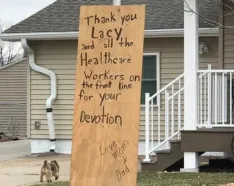 Thank you
Lacy
and all the
Healthcare
Workers on
the front line
for your
Devotion
Love Mom
& Dad